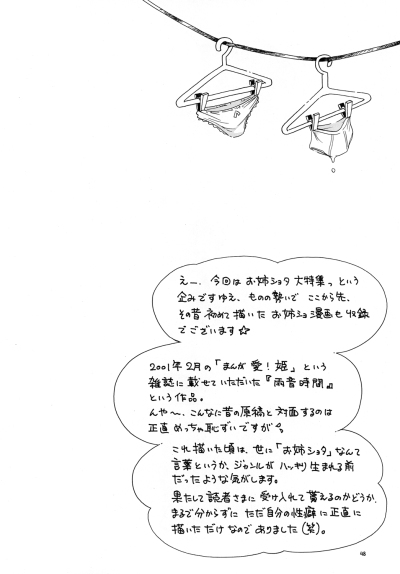 えー、今回はお姉ショタ大特集っという
企みですゆえ、ものの勢いで ここから先、
その昔初めて描いた お姉ショ漫画も収録
でございます☆
2001年2月の「まんが 愛!姫」という
雑誌に載せていただいた『雨音時間』
という作品。
んや〜、こんなに昔の原稿と対面するのは
正直 めっちゃ恥ずいですが
これ描いた頃は、世に「お姉ショタ」なんて
言葉というか、ジャンルが ハッキリ生まれる前
だったような気がします。
果たして読者さまに受け入れて貰えるのかどうか、
まるで分からずに ただ自分の性癖に正直に
描いただけなのでありました(笑)。
98